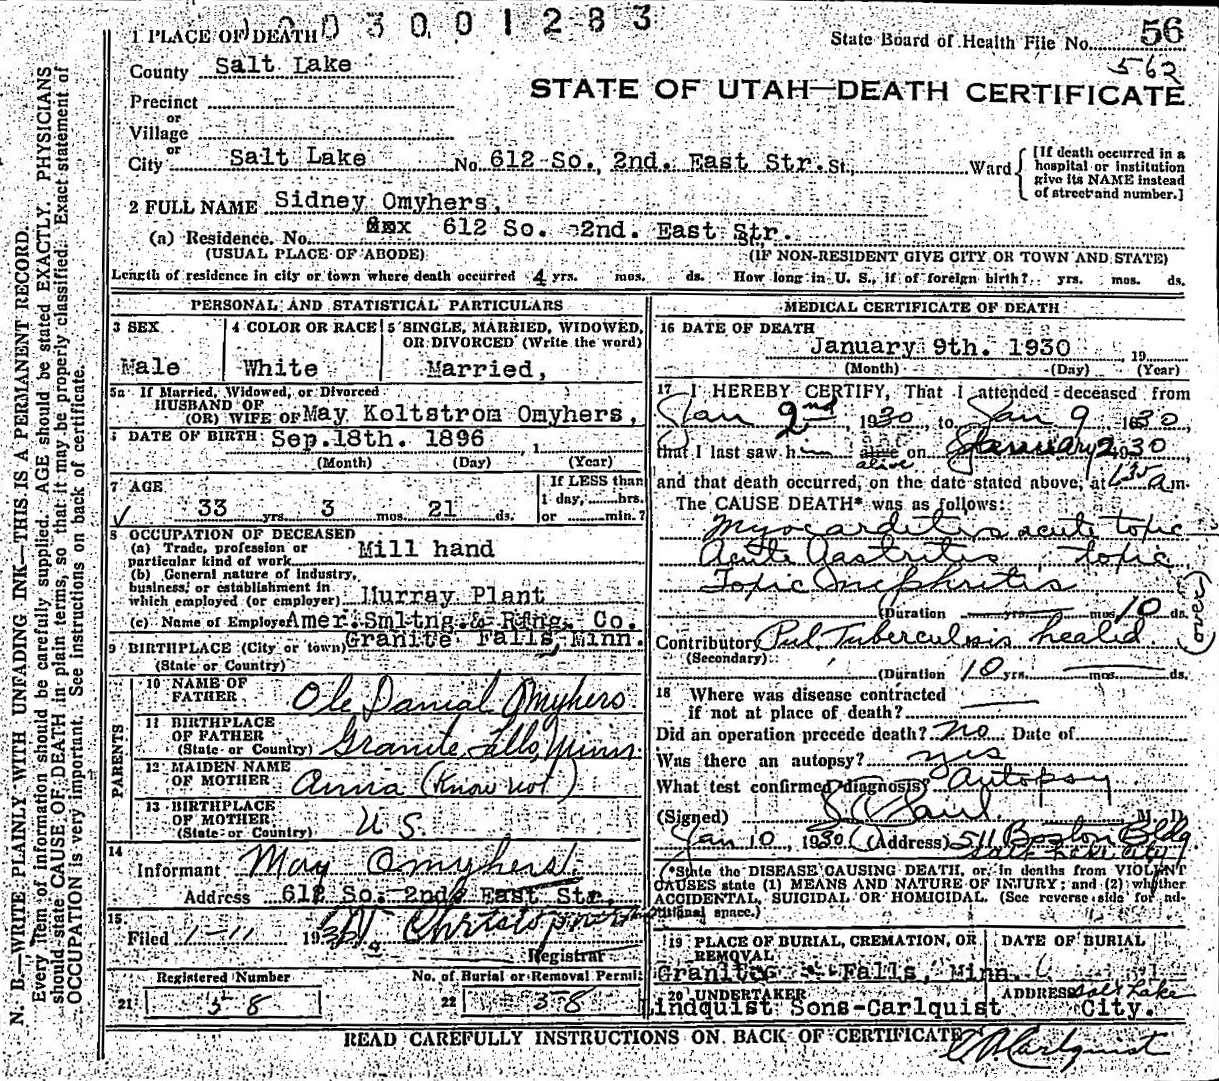 003001283
1 PLACE OF DEATH
State Board of Health File No. 56
562
County Salt Lake
STATE OF UTAH—DEATH CERTIFICATE
Precinct
or
Village
or
City Salt Lake No. 612 So. 2nd. East Str. St., Ward
[If death occurred in a hospital or institution give its NAME instead of street and number.]
2 FULL NAME Sidney Omyhers,
(a) Residence. No. 612 So. 2nd. East Str. St.,
(USUAL PLACE OF ABODE) (IF NON-RESIDENT GIVE CITY OR TOWN AND STATE)
Length of residence in city or town where death occurred 4 yrs. mos. ds. How long in U. S., if of foreign birth? yrs. mos. ds.
PERSONAL AND STATISTICAL PARTICULARS
3 SEX Male
4 COLOR OR RACE White
5 SINGLE, MARRIED, WIDOWED, OR DIVORCED (Write the word) Married,
5a If Married, Widowed, or Divorced
HUSBAND OF
(OR) WIFE OF May Koltstrom Omyhers,
DATE OF BIRTH Sep. 18th. 1896 , 1
(Month) (Day) (Year)
7 AGE 33 yrs. 3 mos. 21 ds.
If LESS than 1 day, hrs. or min.?
8 OCCUPATION OF DECEASED
(a) Trade, profession or particular kind of work Mill hand
(b) General nature of Industry, business, or establishment in which employed (or employer) Murray Plant
(c) Name of Employer Amer. Smltng. & Rfng. Co.
9 BIRTHPLACE (City or town) Granite Falls, Minn.
(State or Country)
PARENTS
10 NAME OF FATHER Ole Danial Omyhers
11 BIRTHPLACE OF FATHER (State or Country) Granite Falls, Minn.
12 MAIDEN NAME OF MOTHER Anna (Know not)
13 BIRTHPLACE OF MOTHER (State or Country) U S.
14
Informant May Omyhers
Address 612 So. 2nd. East Str.
15
Filed 1-11 19
Registrar
Registered Number
21 58
No. of Burial or Removal Permit
22 38
MEDICAL CERTIFICATE OF DEATH
16 DATE OF DEATH
January 9th. 1930 , 19
(Month) (Day) (Year)
17 I HEREBY CERTIFY, That I attended deceased from
Jan 2nd, 1930, to Jan 9 1930,
that I last saw him alive on January 2 1930
and that death occurred, on the date stated above, at 135 a m.
The CAUSE DEATH* was as follows:
Myocarditis acute topic
Acute Gastritis, topic
Topic nephritis
(over)
(Duration yrs. mos. 10 ds.
Contributory Pul. Tuberculosis healed.
(Secondary)
(Duration 10 yrs. mos. ds.
18 Where was disease contracted
if not at place of death?
Did an operation precede death? no Date of
Was there an autopsy? yes
What test confirmed diagnosis? autopsy
(Signed) M. D.
Jan 10, 1930 (Address) 511 Boston Bldg
Salt Lake City
(*State the DISEASE CAUSING DEATH, or, in deaths from VIOLENT
CAUSES state (1) MEANS AND NATURE OF INJURY; and (2) whether
ACCIDENTAL, SUICIDAL OR HOMICIDAL. (See reverse side for additional space.)
19 PLACE OF BURIAL, CREMATION, OR REMOVAL
Granite Falls, Minn.
DATE OF BURIAL
20 UNDERTAKER
Lindquist Sons-Carlquist
ADDRESS Salt Lake
City.
READ CAREFULLY INSTRUCTIONS ON BACK OF CERTIFICATE
N. B.—WRITE PLAINLY WITH UNFADING INK—THIS IS A PERMANENT RECORD.
Every item of information should be carefully supplied. AGE should be stated EXACTLY. PHYSICIANS
should state CAUSE OF DEATH in plain terms, so that it may be properly classified. Exact statement of
OCCUPATION is very important. See instructions on back of certificate.